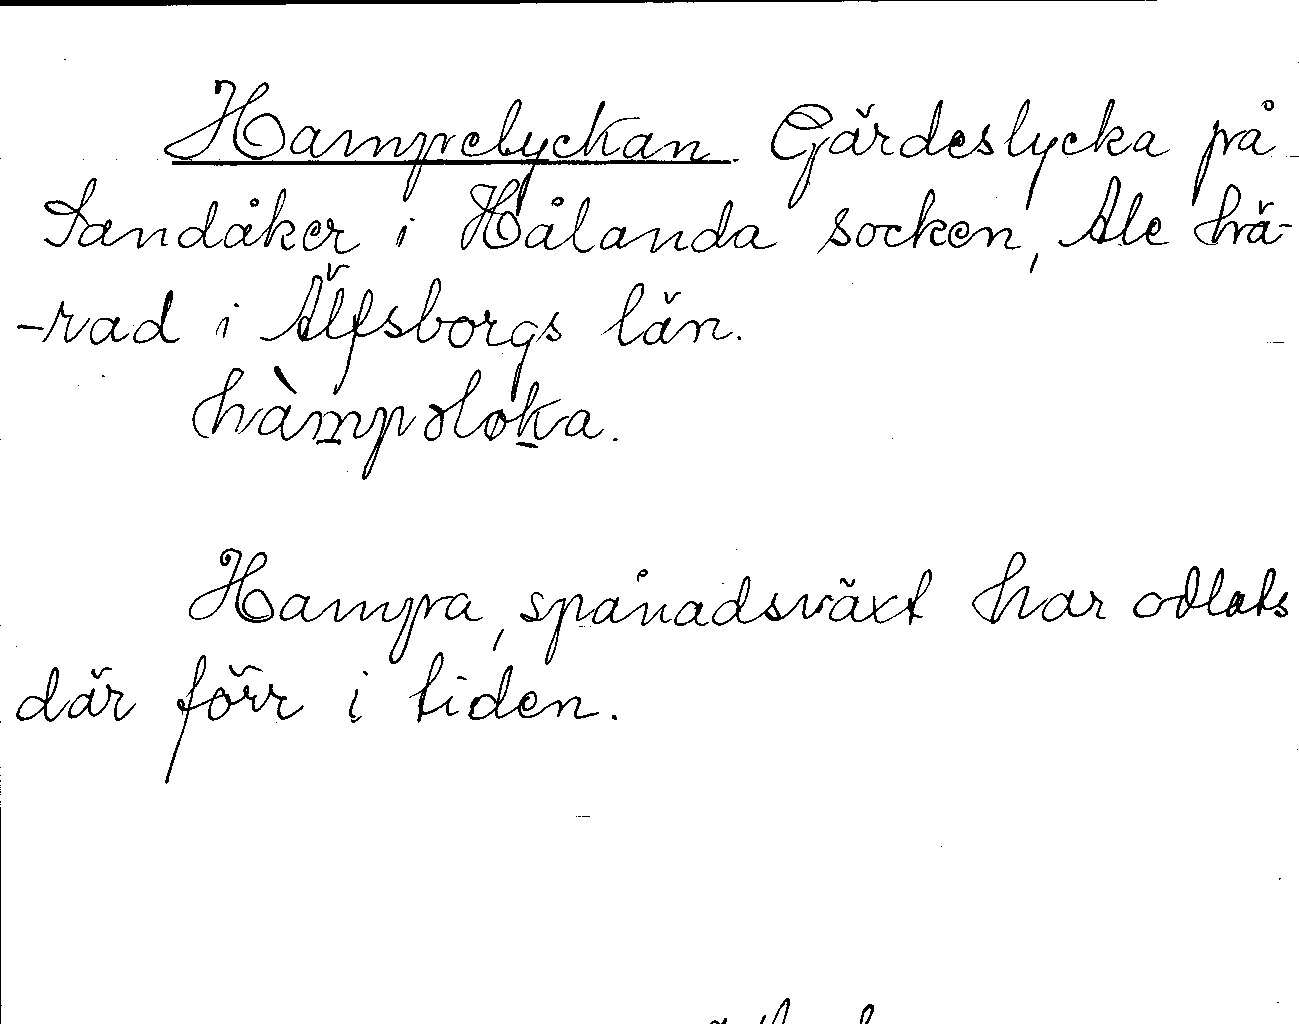 Hampelyckan. Gärdeslycka på
Sandåker i Hålanda socken, Ale hä-
-rad i Älfsborgs län.
hàmpəloka.
Hampa, spånadsväxt har odlats
där förr i tiden.